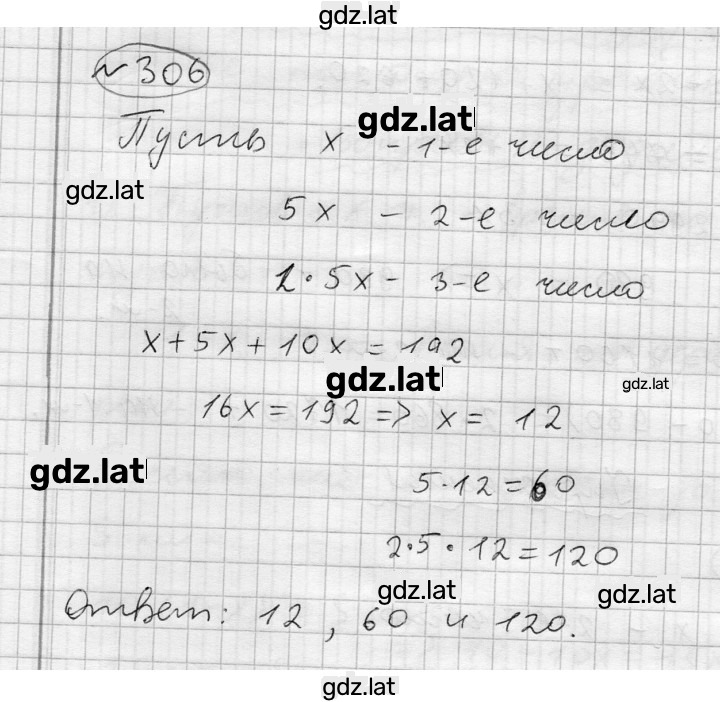 gdz.lat
№ 306
gdz.lat
Пусть x - 1-е число
gdz.lat
5x - 2-е число
2·5x - 3-е число
x+5x+10x=192
gdz.lat
gdz.lat
16x=192=> x= 12
gdz.lat
5·12=60
2·5·12=120
gdz.lat
gdz.lat
Ответ: 12, 60 и 120.
gdz.lat